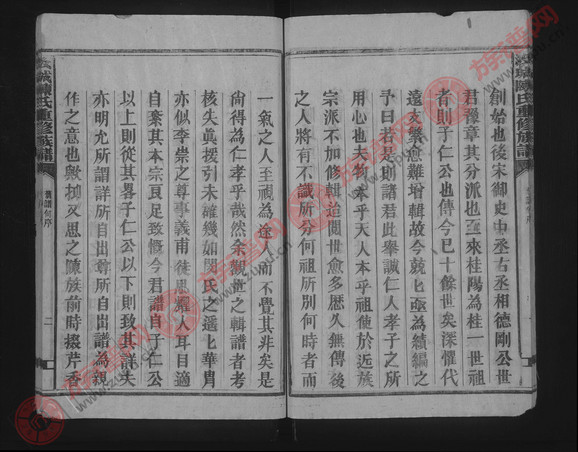 創始也後宋御史中丞右丞相德剛公世
君豫章其分派也至來桂陽為桂一世祖
者則子仁公也傳今已十餘世矣深懼代
遠支繁愈難增輯故今兢兢亟為續編之
予曰若是則諸君此舉誠仁人孝子之所
用心也夫物本乎天人本乎祖使於近族
宗派不加修輯迨閱世愈多歷久無傳後
之人其將不識所分何祖所別何時者而
一氣之人至視為途人而不覺其非矣是
尚得為仁孝乎哉然余觀世之輯譜者考
核失眞援引未確幾如閔氏之遥上華胄
亦似李崇之尊事義甫徒思耀人耳目適
自棄其本宗良足致慨今君譜自子仁公
以上則從其畧子仁公以下則致其詳夫
亦明允所謂詳所自出尊所自出譜為親
作之意也與抑又思之陳族前時擷芹香
城陳氏重修族譜
舊譜何序
二